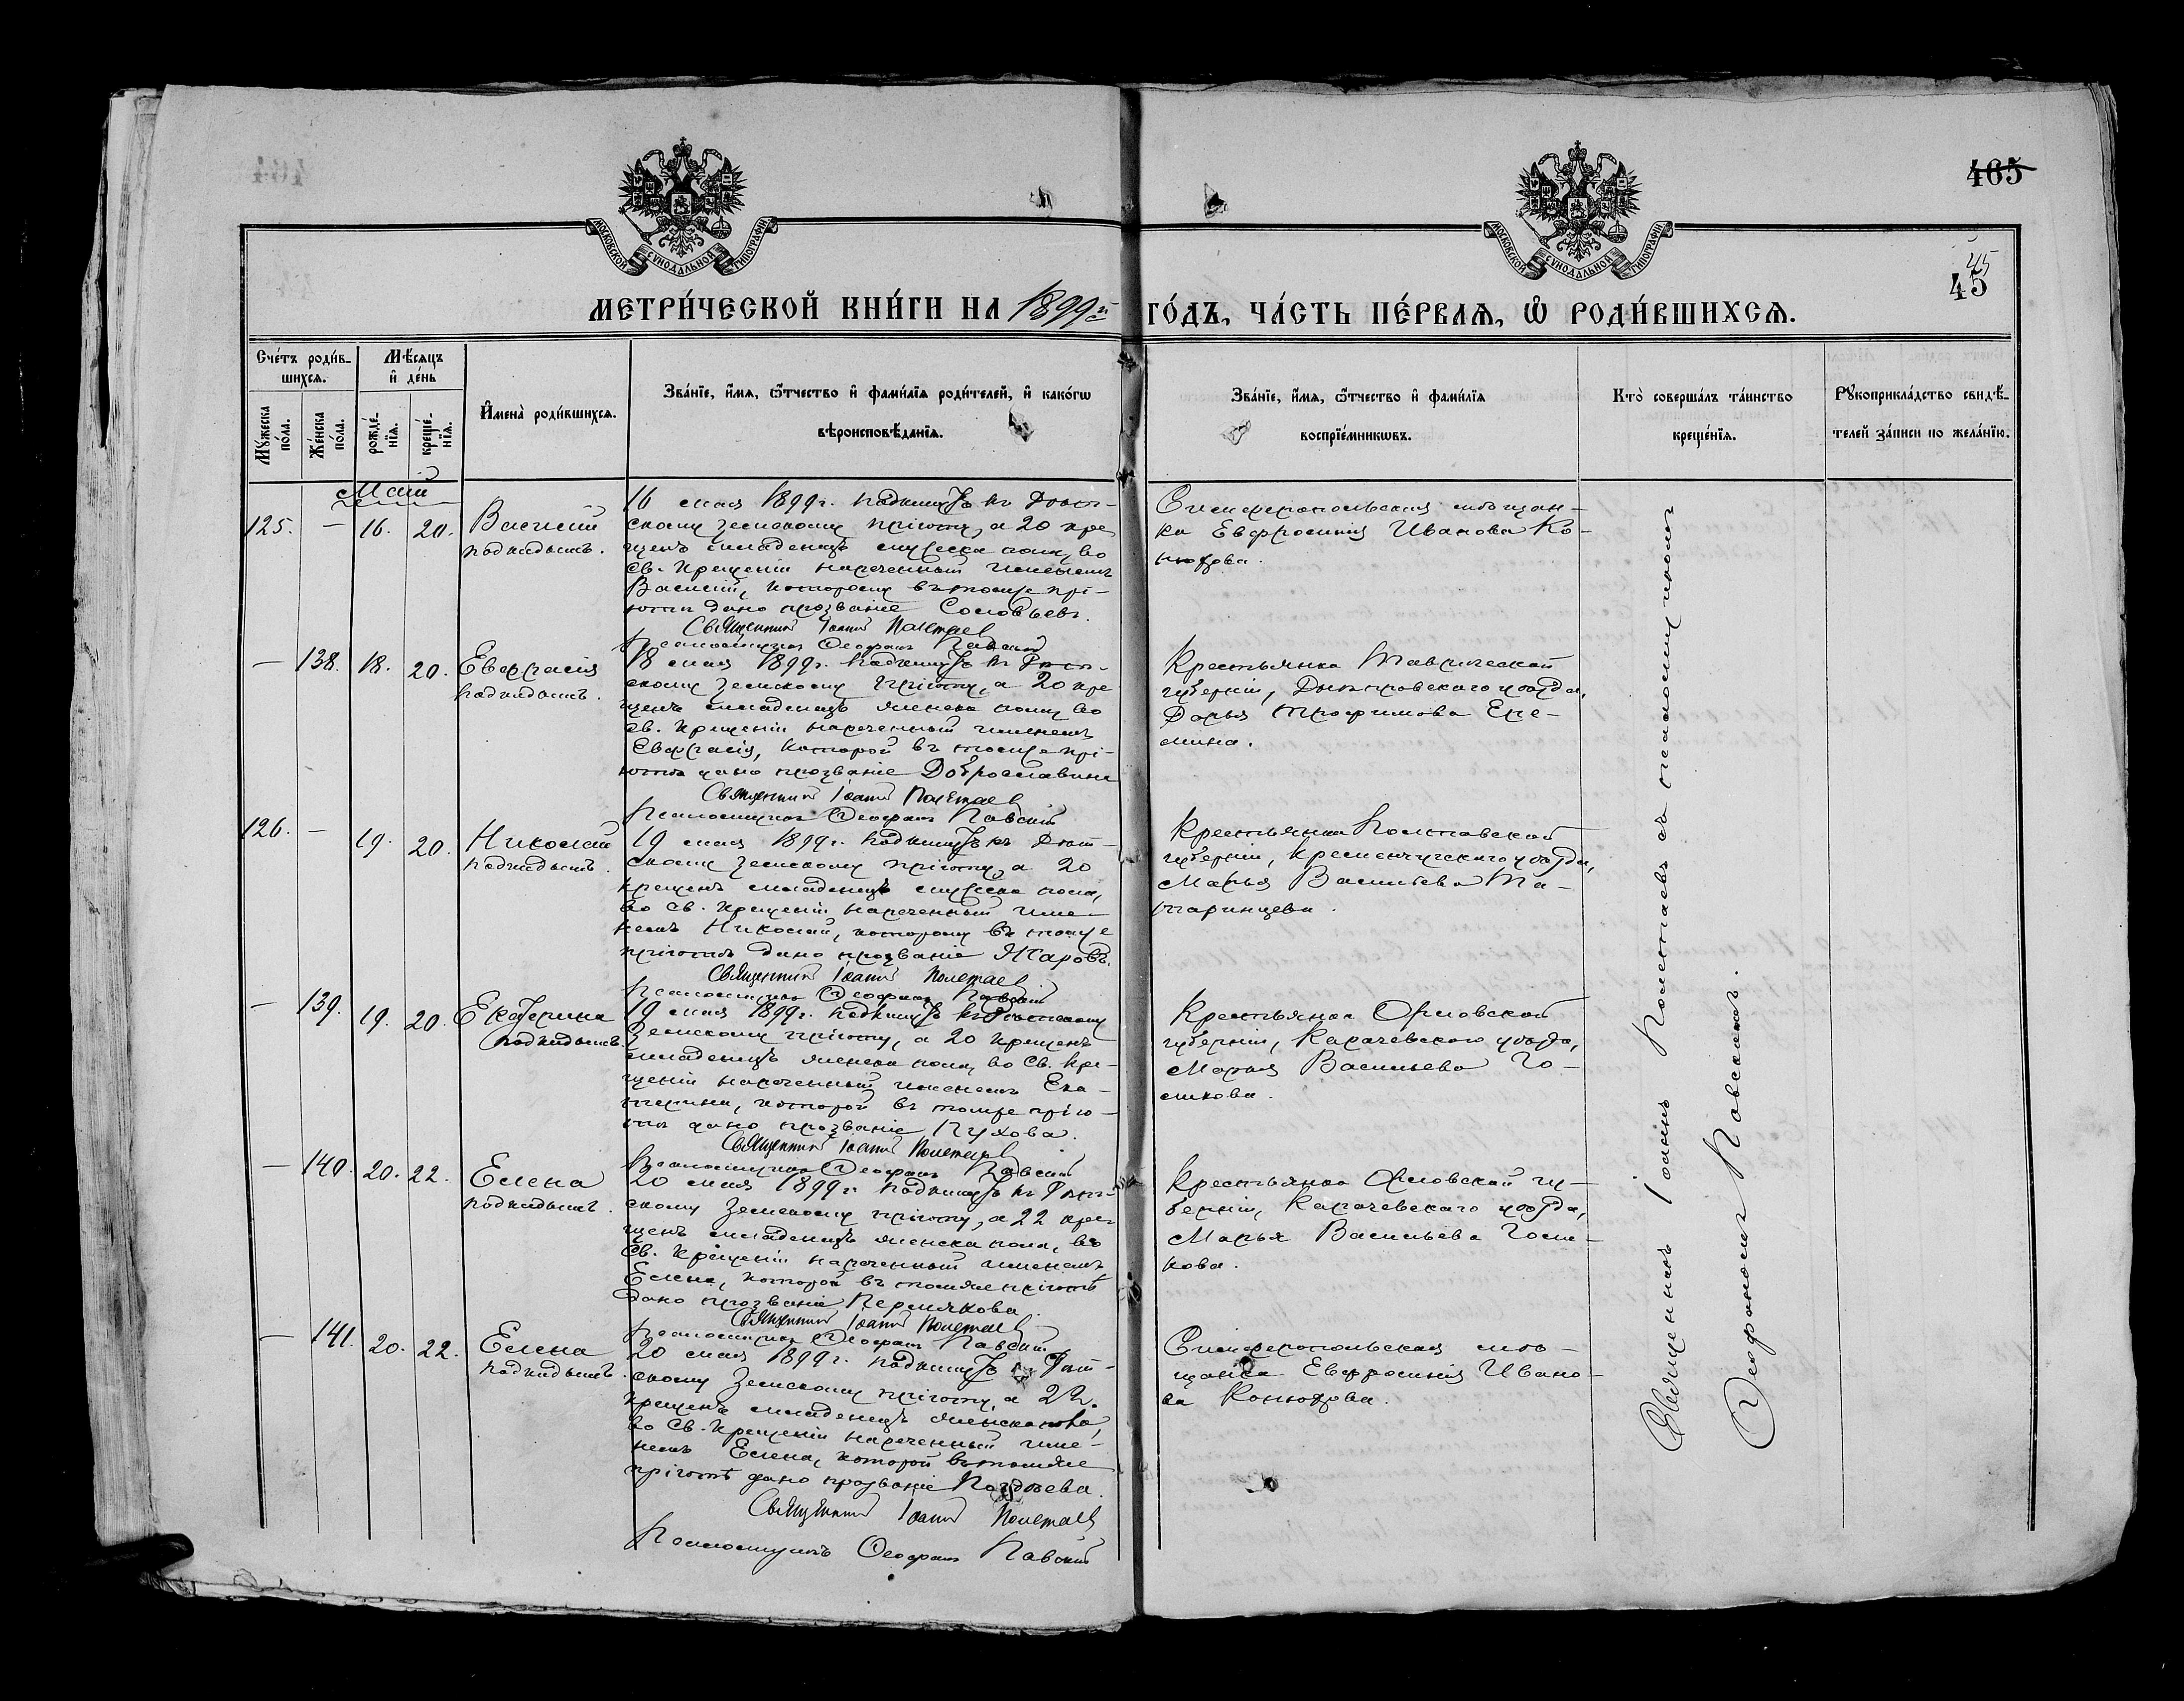 465
45
45
МОСКОВСКОЙ СѴНОДАЛЬНОЙ ТИПОГРАФІИ
МОСКОВСКОЙ СѴНОДАЛЬНОЙ ТИПОГРАФІИ
МЕТРИ́ЧЕСКОЙ КНИ́ГИ НА 1899й ГО́ДЪ, ЧА́СТЬ ПЕ́РВАѦ, Ѡ҆ РОДИ́ВШИХСѦ.
Сче́тъ роди́в-
шихся.
Мꙋжеска по́ла.
Же́нска по́ла.
Мѣ́сяцъ и҆ де́нь
рожде́-
нїя.
креще́-
нїя.
И҆мена̀ роди́вшихся.
Зва́нїе, и҆́мя, ѻ҆́тчество и҆ фами́лїя роди́телей, и҆ како́гѡ
вѣроисповѣ́данїя.
Зва́нїе, и҆́мя, ѻ҆́тчество и҆ фами́лїя
воспрїе́мникѡвъ.
Кто̀ соверша́лъ та́инство
креще́нїя.
Рꙋкоприкла́дство свидѣ́-
телей за́писи по жела́нїю.
Май
125. — 16. 20. Василій
подкидышъ.
16 мая 1899 г. подкинутъ къ
скому земскому пріюту, а 20 кре
щенъ младенецъ мужеска пола, во
Св. Крещеніи нареченный именемъ
Василій, которому въ томъ же прі-
ютѣ дано прозваніе Соловьевъ.
Священникъ Іоаннъ Полетаевъ
Псаломщикъ Ѳеофанъ Павскій
Симферопольская мѣщан-
ка Евфросинія Иванова Ко-
нюхова.
— 138. 18. 20. Евфрасія
подкидышъ.
18 мая 1899 г. подкинутъ къ
скому земскому пріюту, а 20 кре
щенъ младенецъ женска пола, во
св. Крещеніи нареченный именемъ
Евфрасія, которой въ томъ же прі-
ютѣ дано прозваніе Доброславина
Священникъ Іоаннъ Полетаевъ
Псаломщикъ Ѳеофанъ Павскій
Крестьянка Таврической
губерніи, Днѣпровскаго уѣзда,
Дарья Трофимова Ере-
мина.
126. — 19. 20. Николай
подкидышъ.
19 мая 1899 г. подкинутъ къ
скому земскому пріюту, а 20
крещенъ младенецъ мужеска пола,
во св. Крещеніи нареченный име-
немъ Николай, которому въ томъ же
пріютѣ дано прозваніе Жаровъ.
Священникъ Іоаннъ Полетаевъ
Псаломщикъ Ѳеофанъ Павскій
Крестьянка Полтавской
губерніи, Кременчугскаго уѣзда,
Марья Васильева Та-
таринцева.
— 139. 19. 20. Екатерина
подкидышъ.
19 мая 1899 г. подкинутъ къ
Земскому пріюту, а 20 крещенъ
младенецъ женска пола, во Св. Кре-
щеніи нареченный именемъ Ека-
терина, которой въ томъ же прію-
тѣ дано прозваніе Пухова.
Священникъ Іоаннъ Полетаевъ
Псаломщикъ Ѳеофанъ Павскій
Крестьянка Орловской
губерніи, Карачевскаго уѣзда,
Марья Васильева Го-
ликова.
— 140. 20. 22. Елена
подкидышъ.
20 мая 1899 г. подкинутъ къ
скому Земскому пріюту, а 22 кре-
щенъ младенецъ женска пола, во
Св. Крещеніи нареченный именемъ
Елена, которой въ томъ же пріютѣ
дано прозваніе Пермякова.
Священникъ Іоаннъ Полетаевъ
Псаломщикъ Ѳеофанъ Павскій
Крестьянка Орловской гу-
берніи, Карачевскаго уѣзда,
Марья Васильева Голи-
кова.
— 141. 20. 22. Елена
подкидышъ.
20 мая 1899 г. подкинутъ къ
скому Земскому пріюту, а 22.
крещенъ младенецъ женска пола,
во Св. Крещеніи нареченный име-
немъ Елена, которой въ томъ же
пріютѣ дано прозваніе
Священникъ Іоаннъ Полетаевъ
Псаломщикъ Ѳеофанъ Павскій
Симферопольская мѣ-
щанка Евфросинія Ивано-
ва Конюхова.
Священникъ Іоаннъ Полетаевъ съ псаломщикомъ
Ѳеофаномъ Павскимъ.